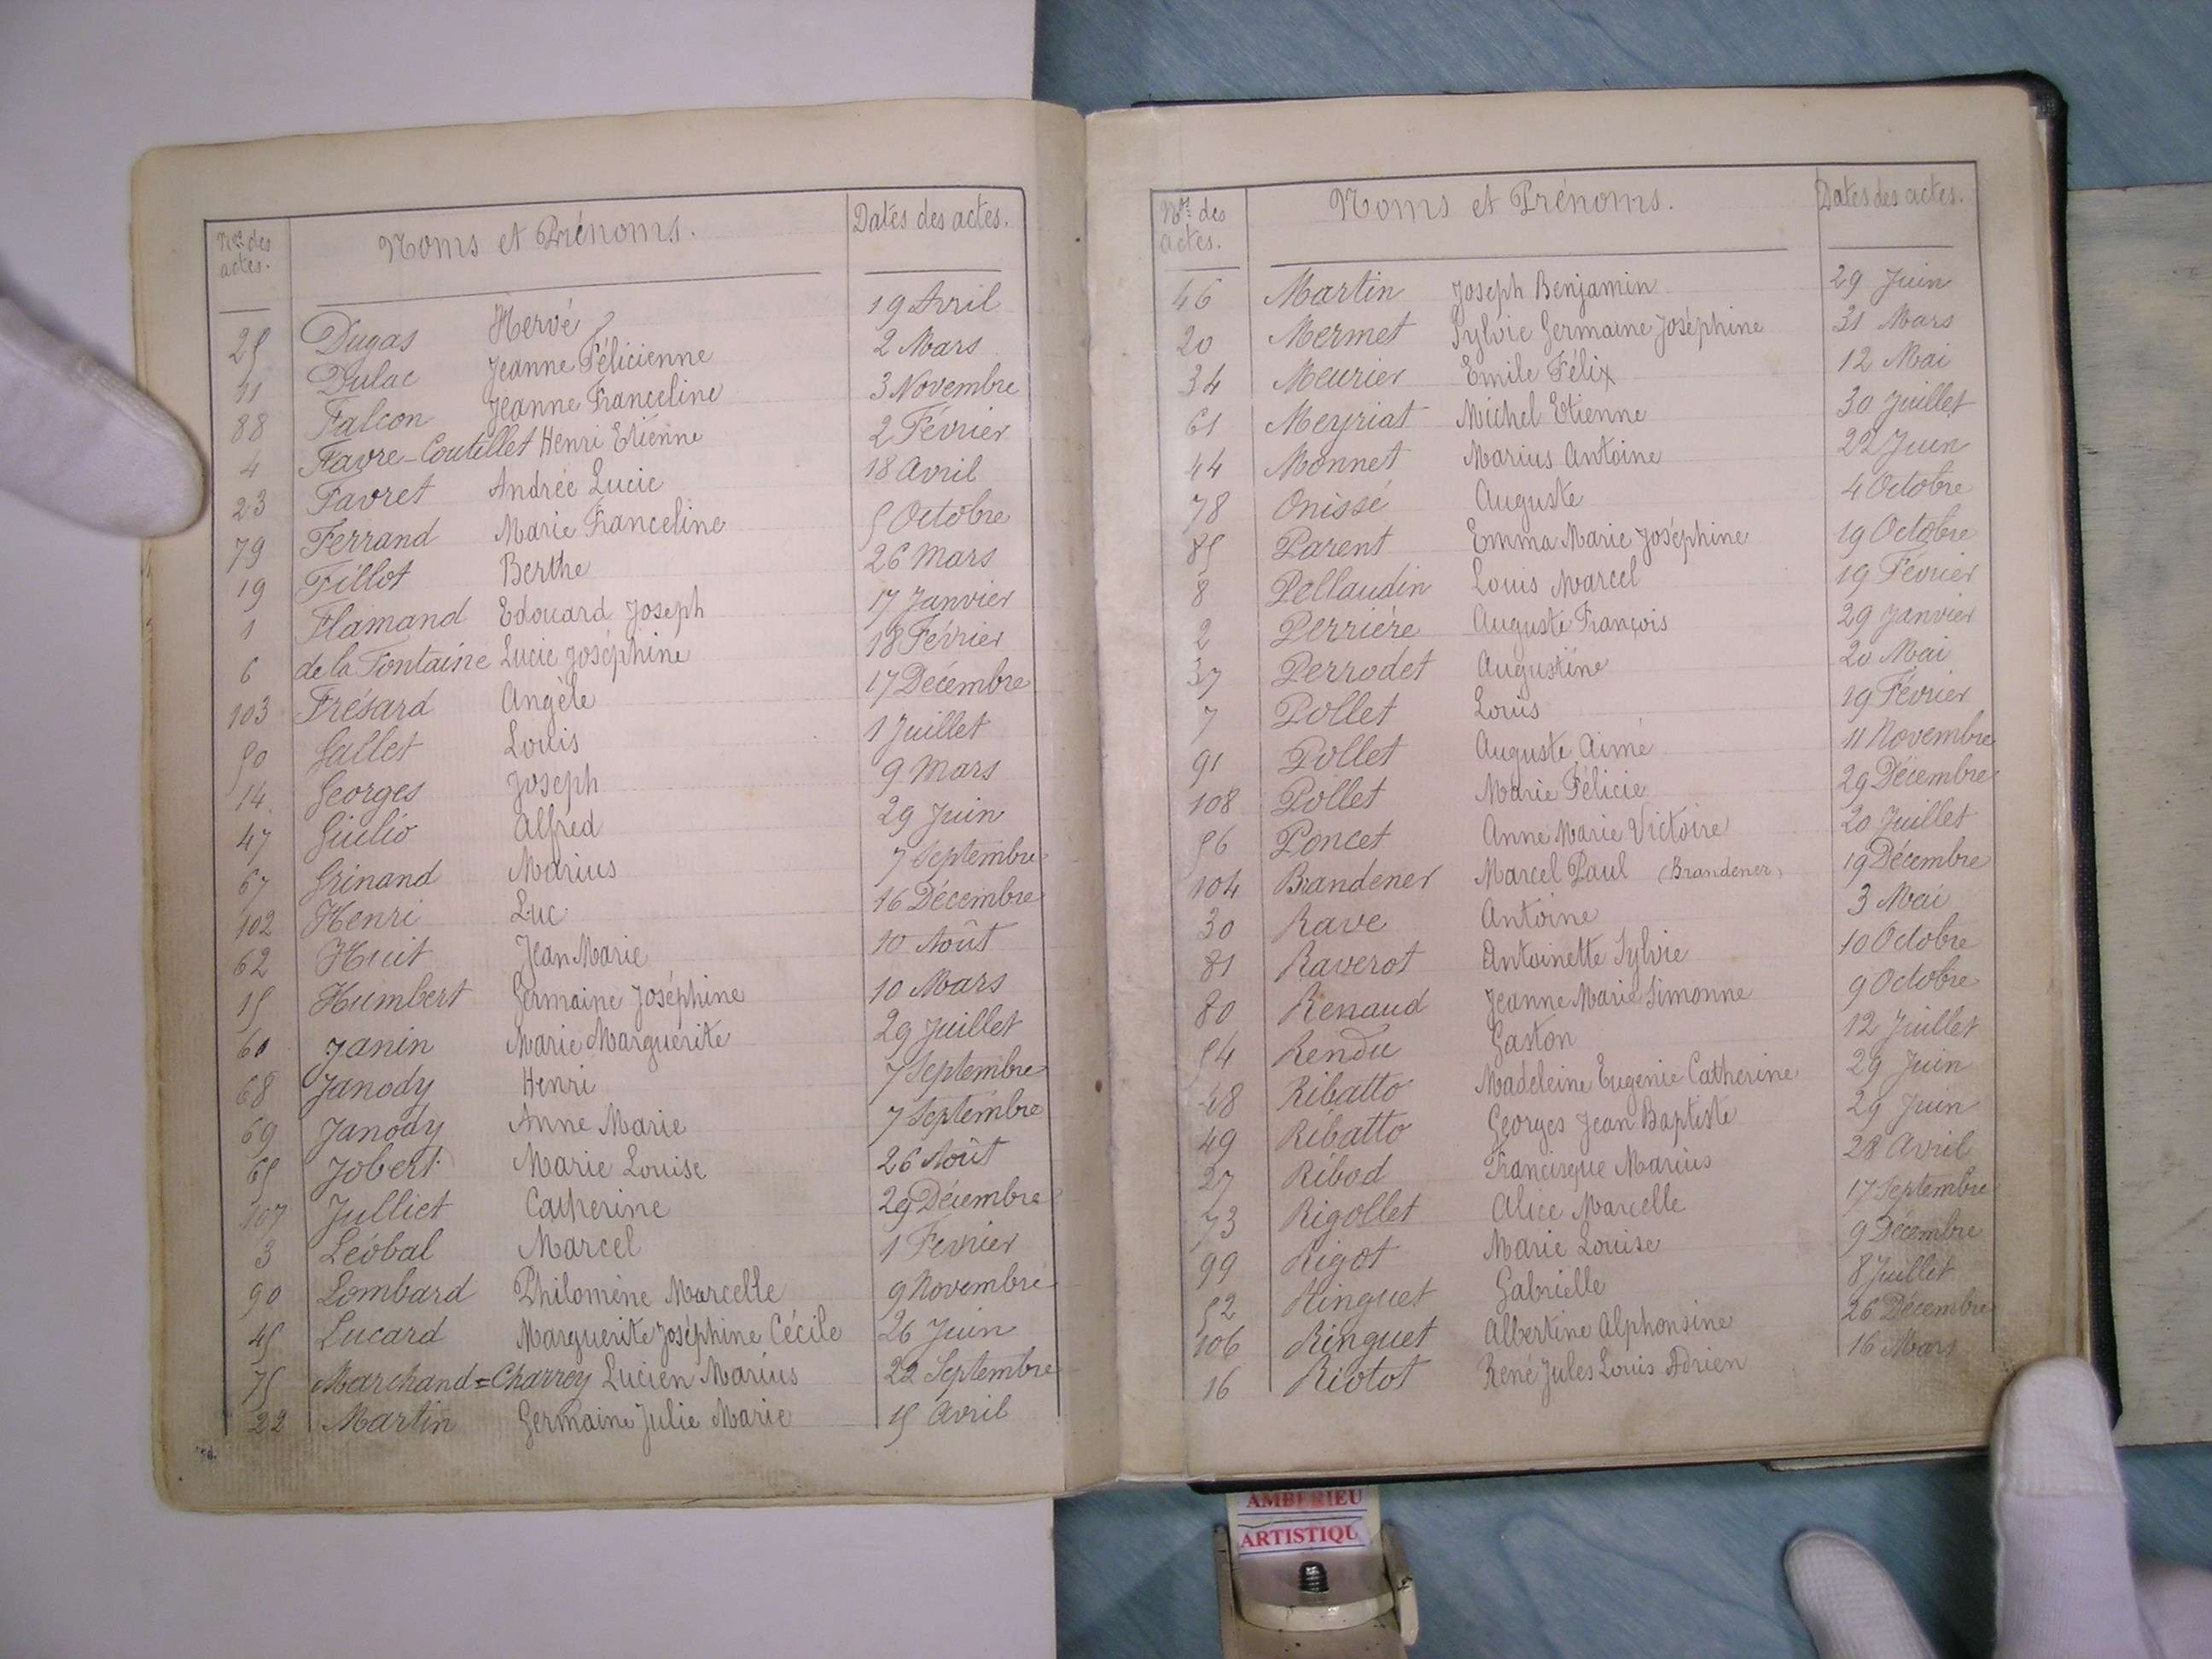 Nos des actes. Noms et Prénoms. Dates des actes.
25 Dugas Hervé 19 Avril
11 Dulac Jeanne Félicienne 2 Mars
88 Falcon Jeanne Franceline 3 Novembre
4 Favre-Coutillet Henri Etienne 2 Février
23 Favret Andrée Lucie 18 Avril
79 Ferrand Marie Franceline 5 Octobre
19 Fillot Berthe 26 Mars
1 Flamand Edouard Joseph 17 Janvier
6 de la Fontaine Lucie Joséphine 18 Février
103 Frésard Angèle 17 Décembre
50 Gallet Louis 1 Juillet
14 Georges Joseph 9 Mars
47 Giulio Alfred 29 Juin
67 Grinand Marius 7 Septembre
102 Henri Luc 16 Décembre
62 Huit Jean Marie 10 Août
15 Humbert Germaine Joséphine 10 Mars
60 Janin Marie Marguerite 29 Juillet
68 Janody Henri 7 Septembre
69 Janody Anne Marie 7 Septembre
65 Jobert Marie Louise 26 Août
107 Julliet Catherine 29 Décembre
3 Léobal Marcel 1 Fevrier
90 Lombard Philomène Marcelle 9 Novembre
45 Lucard Marguerite Joséphine Cécile 26 Juin
75 Marchand=Charrey Lucien Marius 22 Septembre
22 Martin Germaine Julie Marie 15 Avril
Nos des actes. Noms et Prénoms. Dates des actes.
46 Martin Joseph Benjamin 29 Juin
20 Mermet Sylvie Germaine Joséphine 31 Mars
34 Meurier Emile Félix 12 Mai
61 Meyriat Michel Etienne 30 Juillet
44 Monnet Marius Antoine 22 Juin
78 Onissé Auguste 4 Octobre
85 Parent Emma Marie Joséphine 19 Octobre
8 Pellaudin Louis Marcel 19 Février
2 Perrière Auguste François 29 Janvier
37 Perrodet Augustine 20 Mai
7 Pollet Louis 19 Février
91 Pollet Auguste Aimé 11 Novembre
108 Pollet Marie Félicie 29 Décembre
56 Poncet Anne Marie Victoire 20 Juillet
104 Brandener Marcel Paul (Brandener) 19 Décembre
30 Rave Antoine 3 Mai
81 Raverot Antoinette Sylvie 10 Octobre
80 Renaud Jeanne Marie Simonne 9 Octobre
54 Rendu Gaston 12 Juillet
48 Ribatto Madeleine Eugenie Catherine 29 Juin
49 Ribatto Georges Jean Baptiste 29 Juin
27 Ribod Francisque Marius 28 Avril
73 Rigollet Alice Marcelle 17 Septembre
99 Rigot Marie Louise 9 Décembre
52 Ringuet Gabrielle 8 Juillet
106 Ringuet Albertine Alphonsine 26 Décembre
16 Riotot René Jules Louis Adrien 16 Mars
AMBERIEU
ARTISTIQU